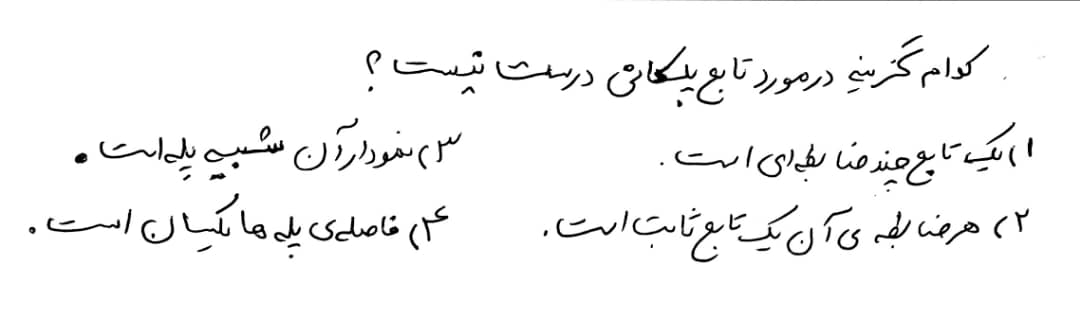 کدام گزینه در مورد تابع پلکانی درست نیست؟
۱) یک تابع چند ضابطه ای است.
۲) هر ضابطه ی آن یک تابع ثابت است.
۳) نمودار آن شبیه پله است.
۴) فاصله ی پله ها یکسان است.